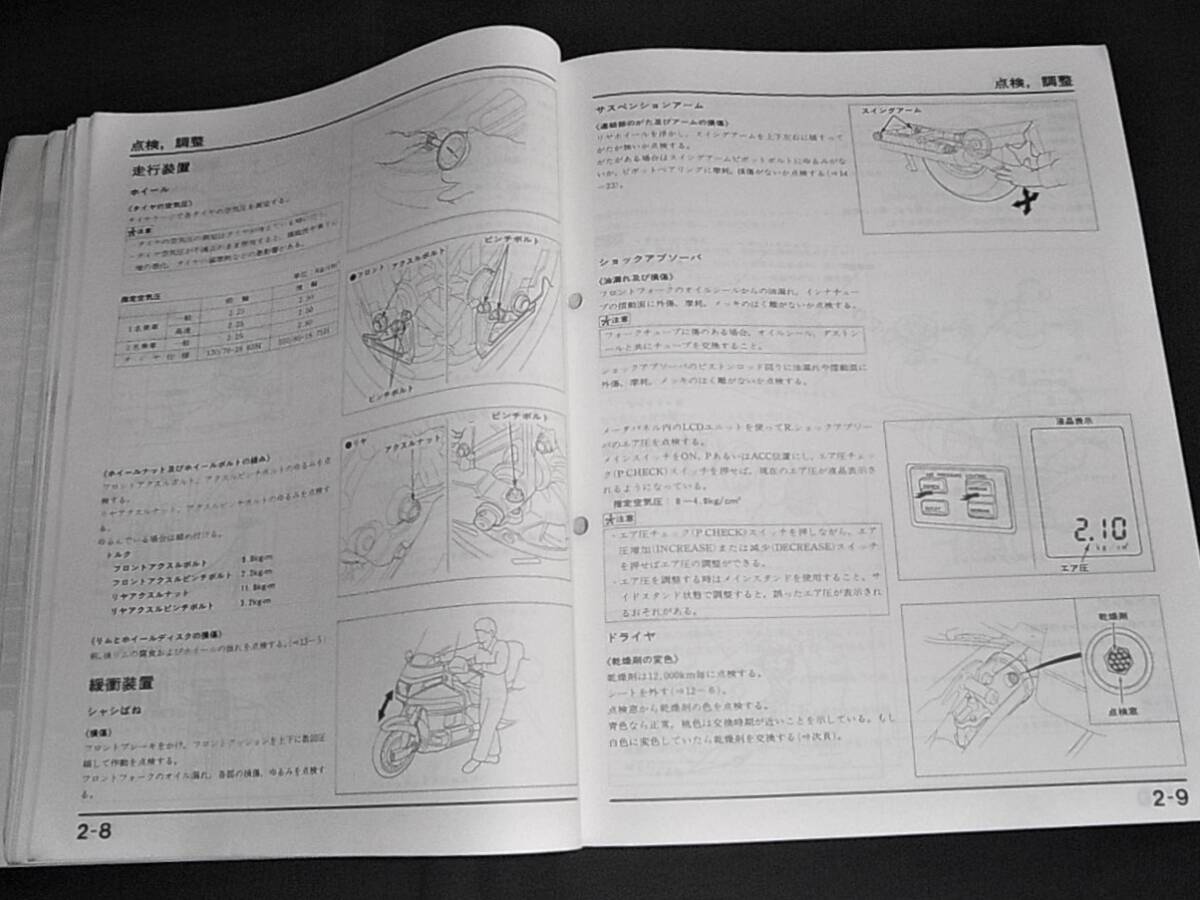 点検，調整
走行装置
ホイール
《タイヤの空気圧》
タイヤゲージで各タイヤの空気圧を測定する。
注意
推定空気圧
単位：kg/cm²
前輪
後輪
1名乗車
一般
2.25
高速
2.25
2名乗車
一般
2.25
タイヤ仕様
●フロント
アクスルボルト
ピンチボルト
ピンチボルト
《ホイールナット及びホイールボルトの緩み》
フロントアクスルボルト、アクスルピンチボルトのゆるみを点
検する。
リヤアクスルナット、アクスルピンチボルトのゆるみを点検す
る。
ゆるんでいる場合は締め付ける。
トルク
フロントアクスルボルト
フロントアクスルピンチボルト
リヤアクスルナット
リヤアクスルピンチボルト
●リヤ
アクスルナット
ピンチボルト
《リムとホイールディスクの損傷》
前，後リムの腐食およびホイールの振れを点検する。(⇒13−5)
緩衝装置
シャシばね
《損傷》
フロントブレーキをかけ、フロントクッションを上下に数回圧
縮して作動を点検する。
フロントフォークのオイル漏れ，各部の損傷，ゆるみを点検す
る。
2-8
点検，調整
サスペンションアーム
《連結部のがた及びアームの損傷》
リヤホイールを浮かし，スイングアームを上下左右に揺すって
がたが無いか点検する。
がたがある場合はスイングアームピボットボルトにゆるみがな
いか，ピボットベアリングに摩耗，損傷がないか点検する(⇒14
−23)。
スイングアーム
ショックアブソーバ
《油漏れ及び損傷》
フロントフォークのオイルシールからの油漏れ，インナチュー
ブの摺動面に外傷，摩耗，メッキのはく離がないか点検する。
注意
フォークチューブに傷のある場合，オイルシール，ダストシ
ールと共にチューブを交換すること。
ショックアブソーバのピストンロッド回りに油漏れや摺動面に
外傷，摩耗，メッキのはく離がないか点検する。
メータパネル内のLCDユニットを使ってR.ショックアブソー
バのエア圧を点検する。
メインスイッチをON，PあるいはACC位置にし，エア圧チェッ
ク(P.CHECK)スイッチを押せば，現在のエア圧が液晶表示さ
れるようになっている。
推定空気圧：0−4.0kg/cm²
注意
・エア圧チェック(P.CHECK)スイッチを押しながら，エア
圧増加(INCREASE)または減少(DECREASE)スイッチ
を押せばエア圧の調整ができる。
・エア圧を調整する時はメインスタンドを使用すること。サ
イドスタンド状態で調整すると，誤ったエア圧が表示され
るおそれがある。
液晶表示
2.10
kg/cm²
エア圧
ドライヤ
《乾燥剤の変色》
乾燥剤は12,000km毎に点検する。
シートを外す(⇒12−6)。
点検窓から乾燥剤の色を点検する。
青色なら正常，桃色は交換時期が近いことを示している。もし
白色に変色していたら乾燥剤を交換する(⇒次頁)。
乾燥剤
点検窓
2-9